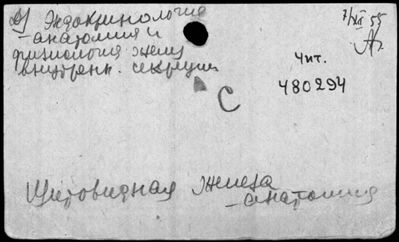 Эндокринология
- анатомия и
физиология желез
внутренн. секреции
7/XII 55
Чит.
480294
С
Щитовидная железа
- анатомия